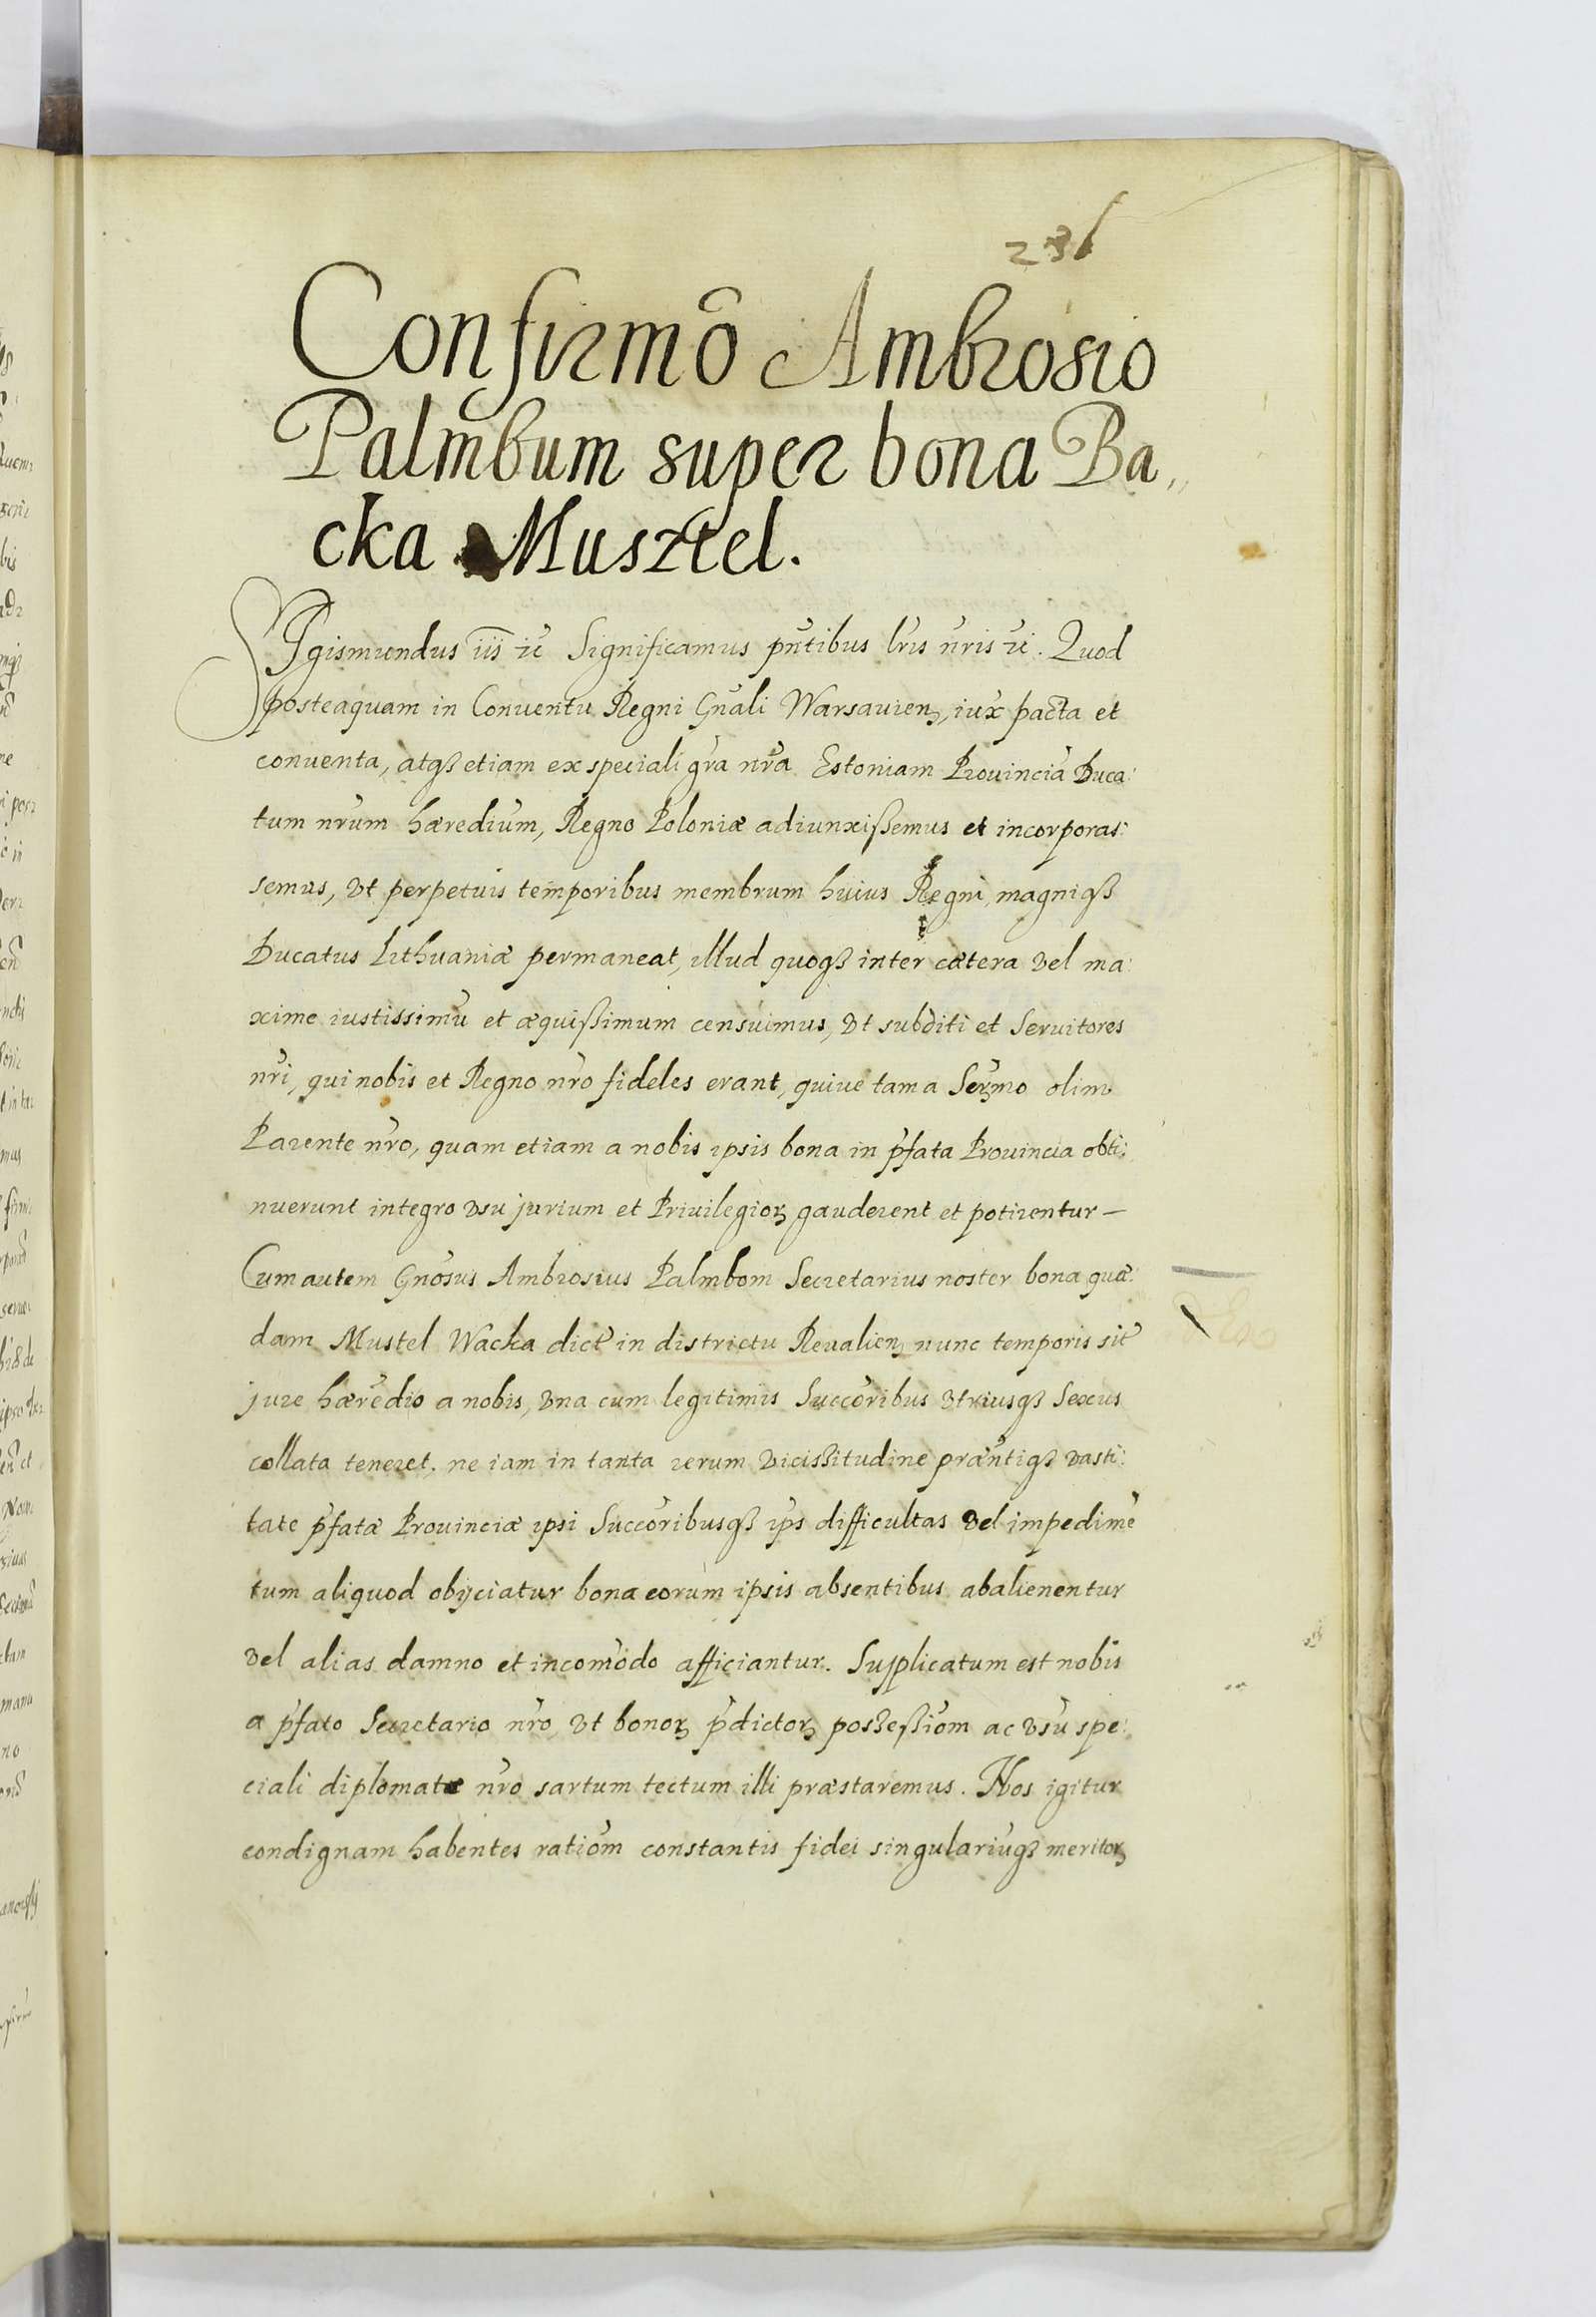 236
Confirmõ Ambrosio
Palmbum super bona Ba„
cka Musztel.
Sigismundus iii ꝛc Significamus pñtibus lr̃is nr̃is ꝛc. Quod
posteaquam in Conuentu Regni Gñali Warsauien, iux pacta et
conuenta, atqꝫ etiam ex speciali gr̃a nr̃a Estoniam Prouinciã Duca:
tum nr̃um hæredium̃, Regno Poloniæ adiunxißemus et incorporas:
semus, vt perpetuis temporibus membrum huius Regni, magniqꝫ
Ducatus Lithuaniæ permaneat, illud quoqꝫ inter cætera vel ma:
xime iustissimũ et æquißimum censuimus, vt subditi et Seruitores
nr̃i, qui nobis et Regno nr̃o fideles erant, quiue tam a Serꝫmo olim
Parente nr̃o, quam etiam a nobis ipsis bona in p̃fata Prouincia obti:
nuerunt integro vsu jurium et Priuilegioꝝ gauderent et potirentur —
Cum autem Gnõsus Ambrosius Palmbom Secretarius noster bona quæ:
dam Mustel Wacka dict̃ in districtu Reualien nunc temporis sit̃
jure hæredio̊ a nobis, vna cum legitimis Succõribus vtriusqꝫ Sexus
collata teneret. ne iam in tanta rerum vicissitudine præñtiqꝫ vasti:
tate p̃fatæ Prouinciæ ipsi Succõribusqꝫ ip̃s difficultas vel impedimẽ
tum aliquod obijciatur bona eorum ipsis absentibus abalienentur
vel alias damno et incom̃odo afficiantur. Supplicatum est nobis
a p̃fato Secretario nr̃o vt bonoꝝ p̃dictoꝝ posseßiom̃ ac vsũ spe:
ciali diplomate nr̃o sartum tectum illi præstaremus. Nos igitur
condignam habentes ratiom̃ constantis fidei singulariũqꝫ meritoꝝ